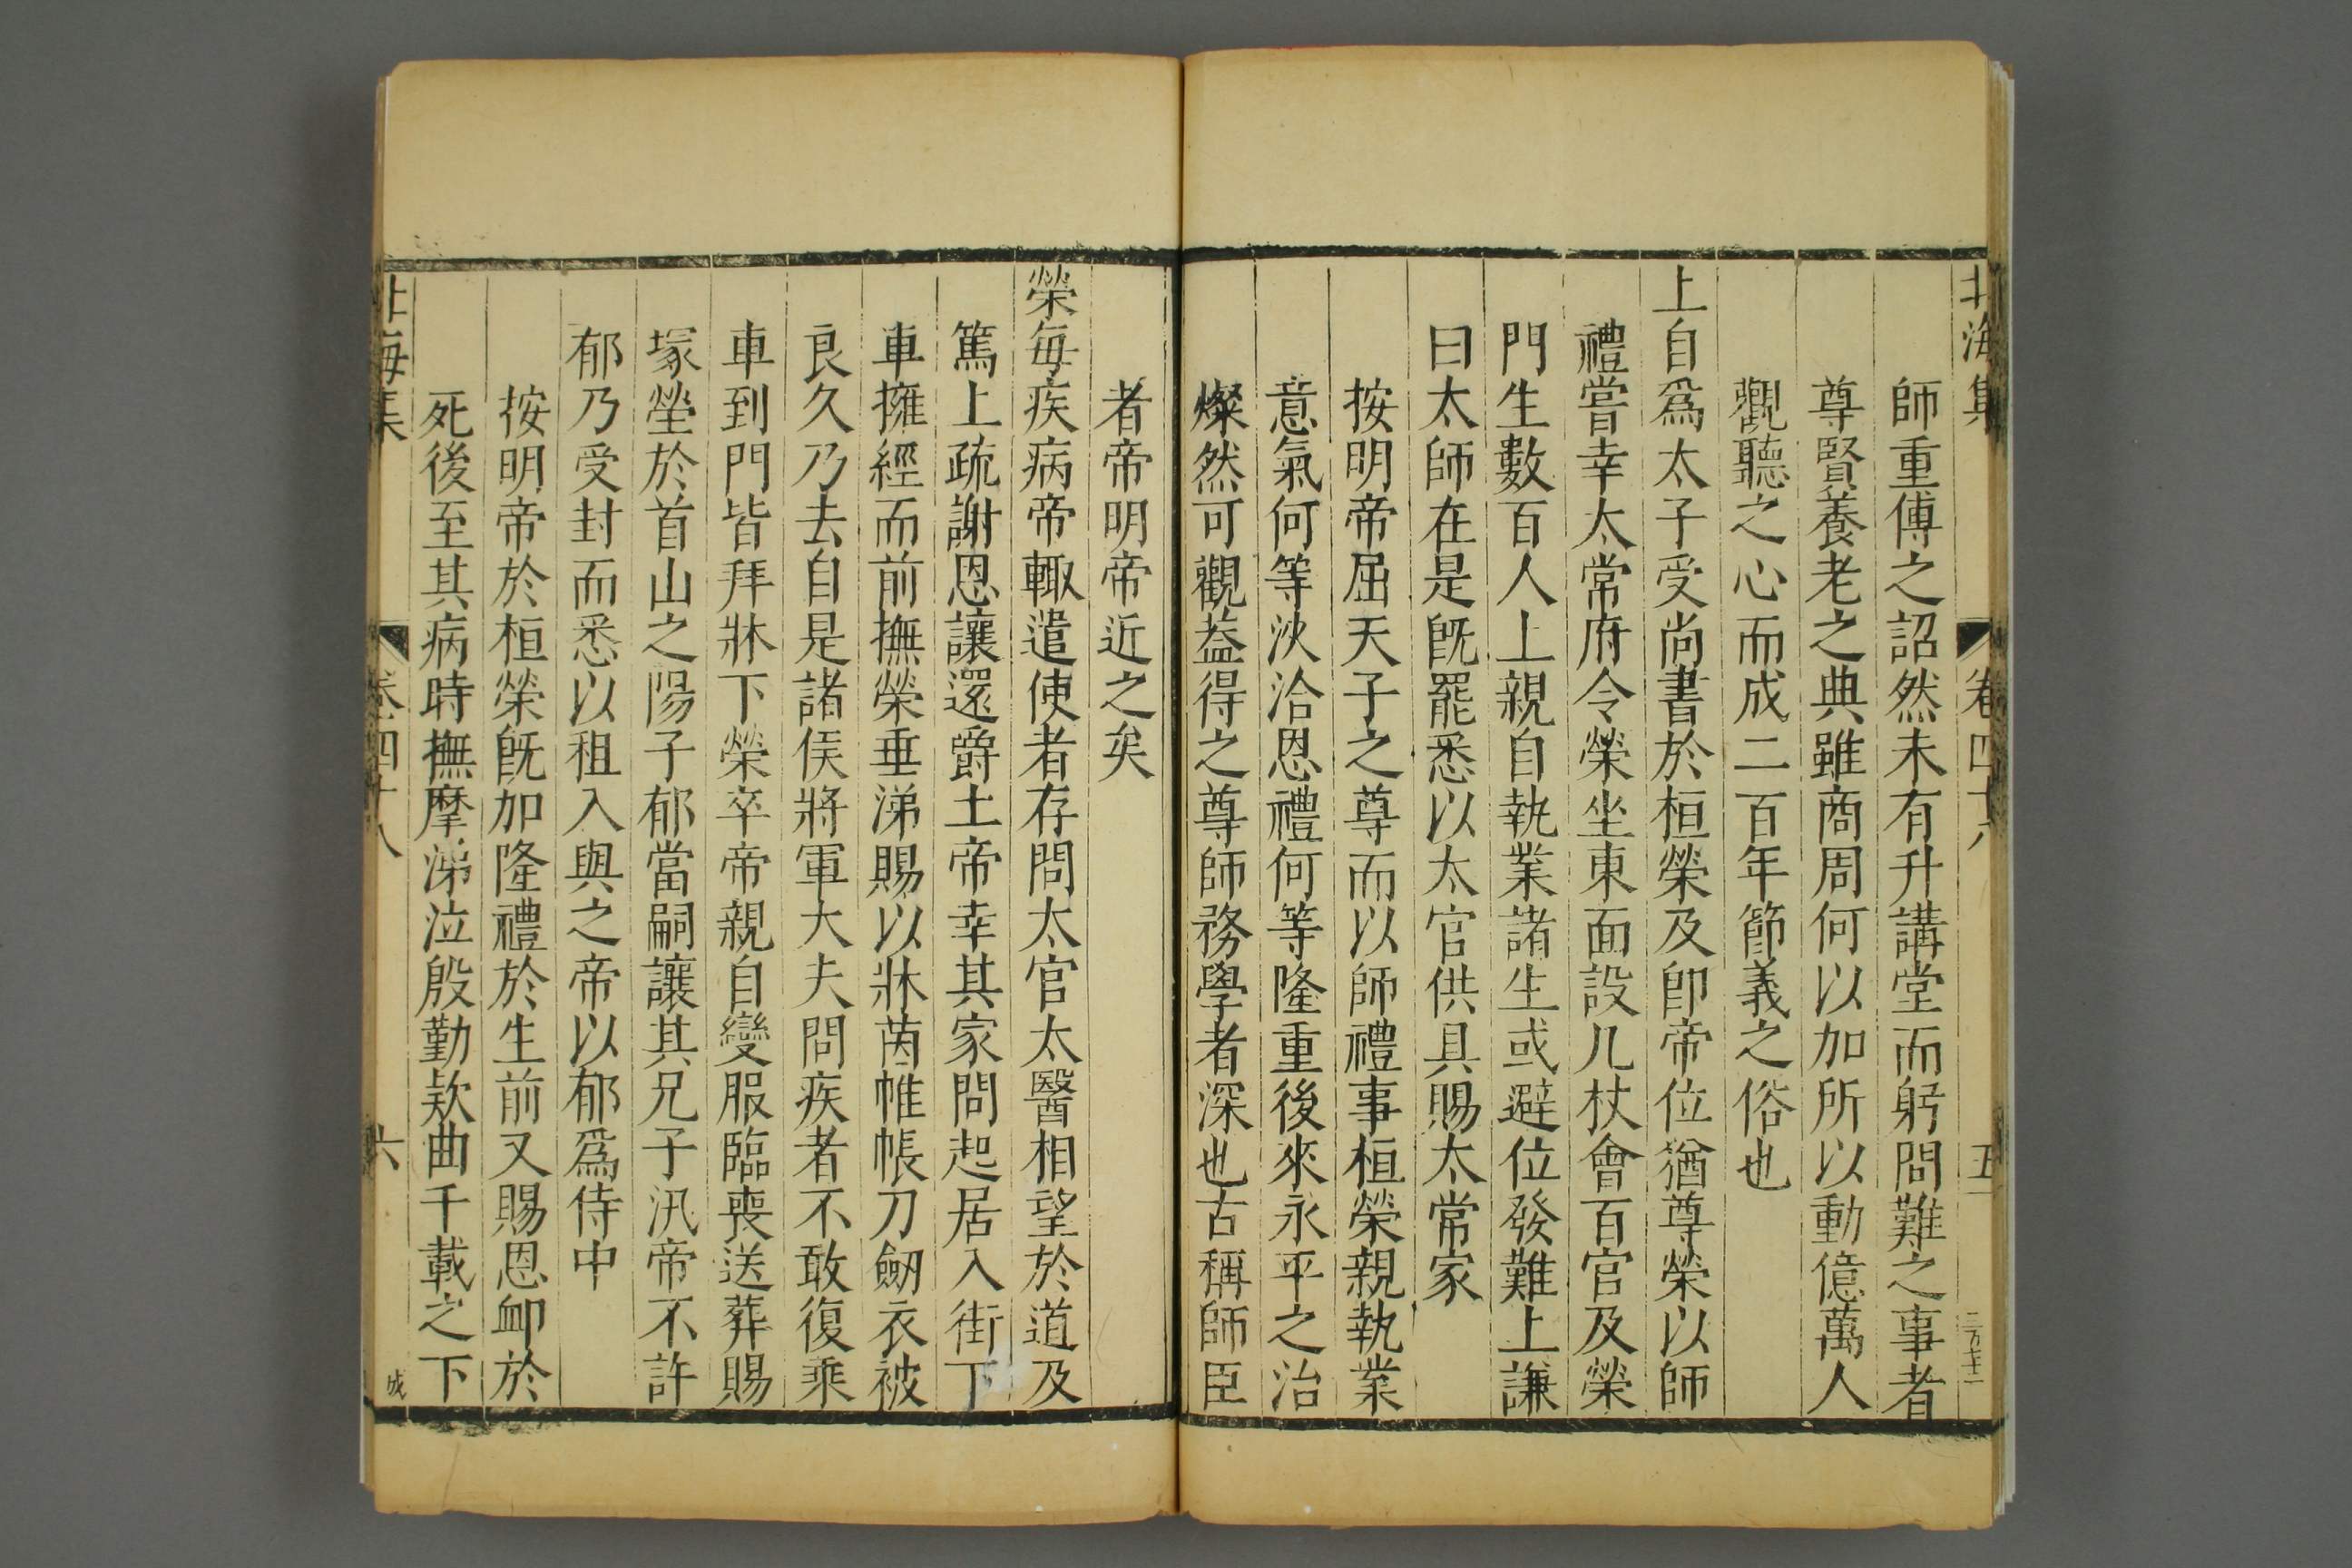 北海集 卷四十八 五
師重傅之詔然未有升講堂而躬問難之事者
尊賢養老之典雖商周何以加所以動億萬人
觀聽之心而成二百年節義之俗也
上自爲太子受尚書於桓榮及卽帝位猶尊榮以師
禮嘗幸太常府令榮坐東面設几杖會百官及榮
門生數百人上親自執業諸生或避位發難上謙
曰太師在是旣罷悉以太官供具賜太常家
按明帝屈天子之尊而以師禮事桓榮親執業
意氣何等浹洽恩禮何等隆重後來永平之治
燦然可觀葢得之尊師務學者深也古稱師臣
者帝明帝近之矣
榮每疾病帝輙遣使者存問太官太醫相望於道及
篤上疏謝恩讓還爵土帝幸其家問起居入街下
車擁經而前撫榮垂涕賜以牀茵帷帳刀劒衣被
良久乃去自是諸侯將軍大夫問疾者不敢復乘
車到門皆拜牀下榮卒帝親自變服臨喪送葬賜
塚塋於首山之陽子郁當嗣讓其兄子汎帝不許
郁乃受封而悉以租入與之帝以郁爲侍中
按明帝於桓榮旣加隆禮於生前又賜恩卹於
死後至其病時撫摩涕泣殷勤欵曲千載之下
北海集 卷四十八 六 成